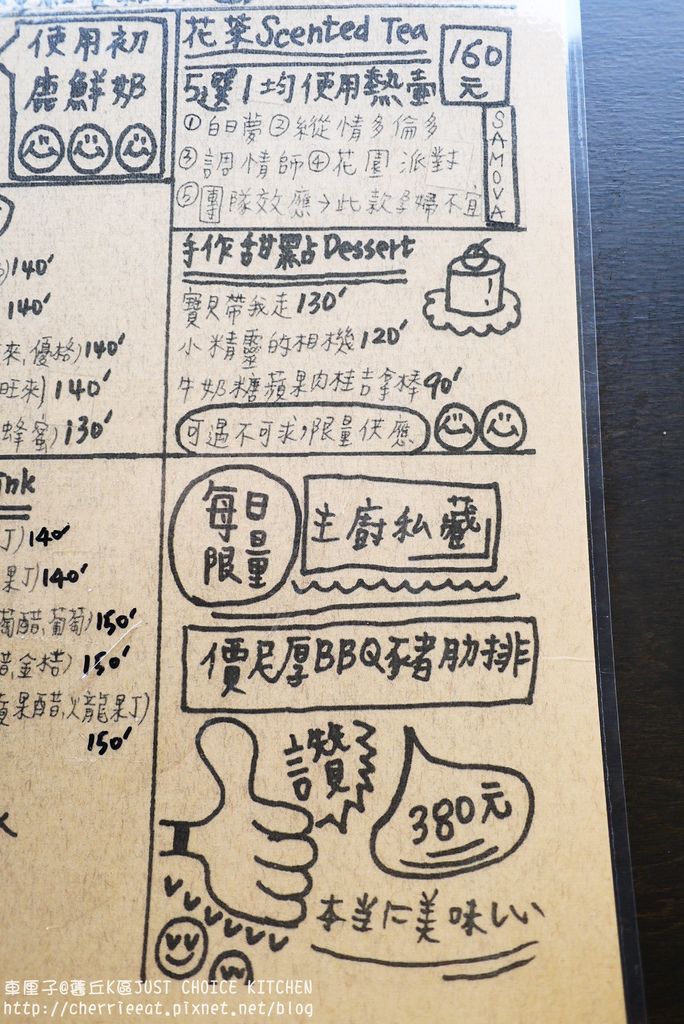 使用初
鹿鮮奶
花茶Scented Tea
160
元
5選1均使用熱壺
SAMOVA
①白日夢②縱情多倫多
③調情師④花園派對
⑤團隊效應→此款孕婦不宜
140
140
來,優格)140
旺來)140
蜂蜜)130
手作甜點Dessert
寶貝帶我走130
小精靈的相機120
牛奶糖蘋果肉桂吉拿棒90
可遇不可求,限量供應
ink
J)140
果J)140
葡醋,葡萄)150
醋,金桔)150
果醋,火龍果J)
150
每日
限量
主廚私藏
價尼厚BBQ豬肋排
讚
380元
本当に美味しい
車厘子@舊丘K區JUST CHOICE KITCHEN
http://cherrieeat.pixnet.net/blog